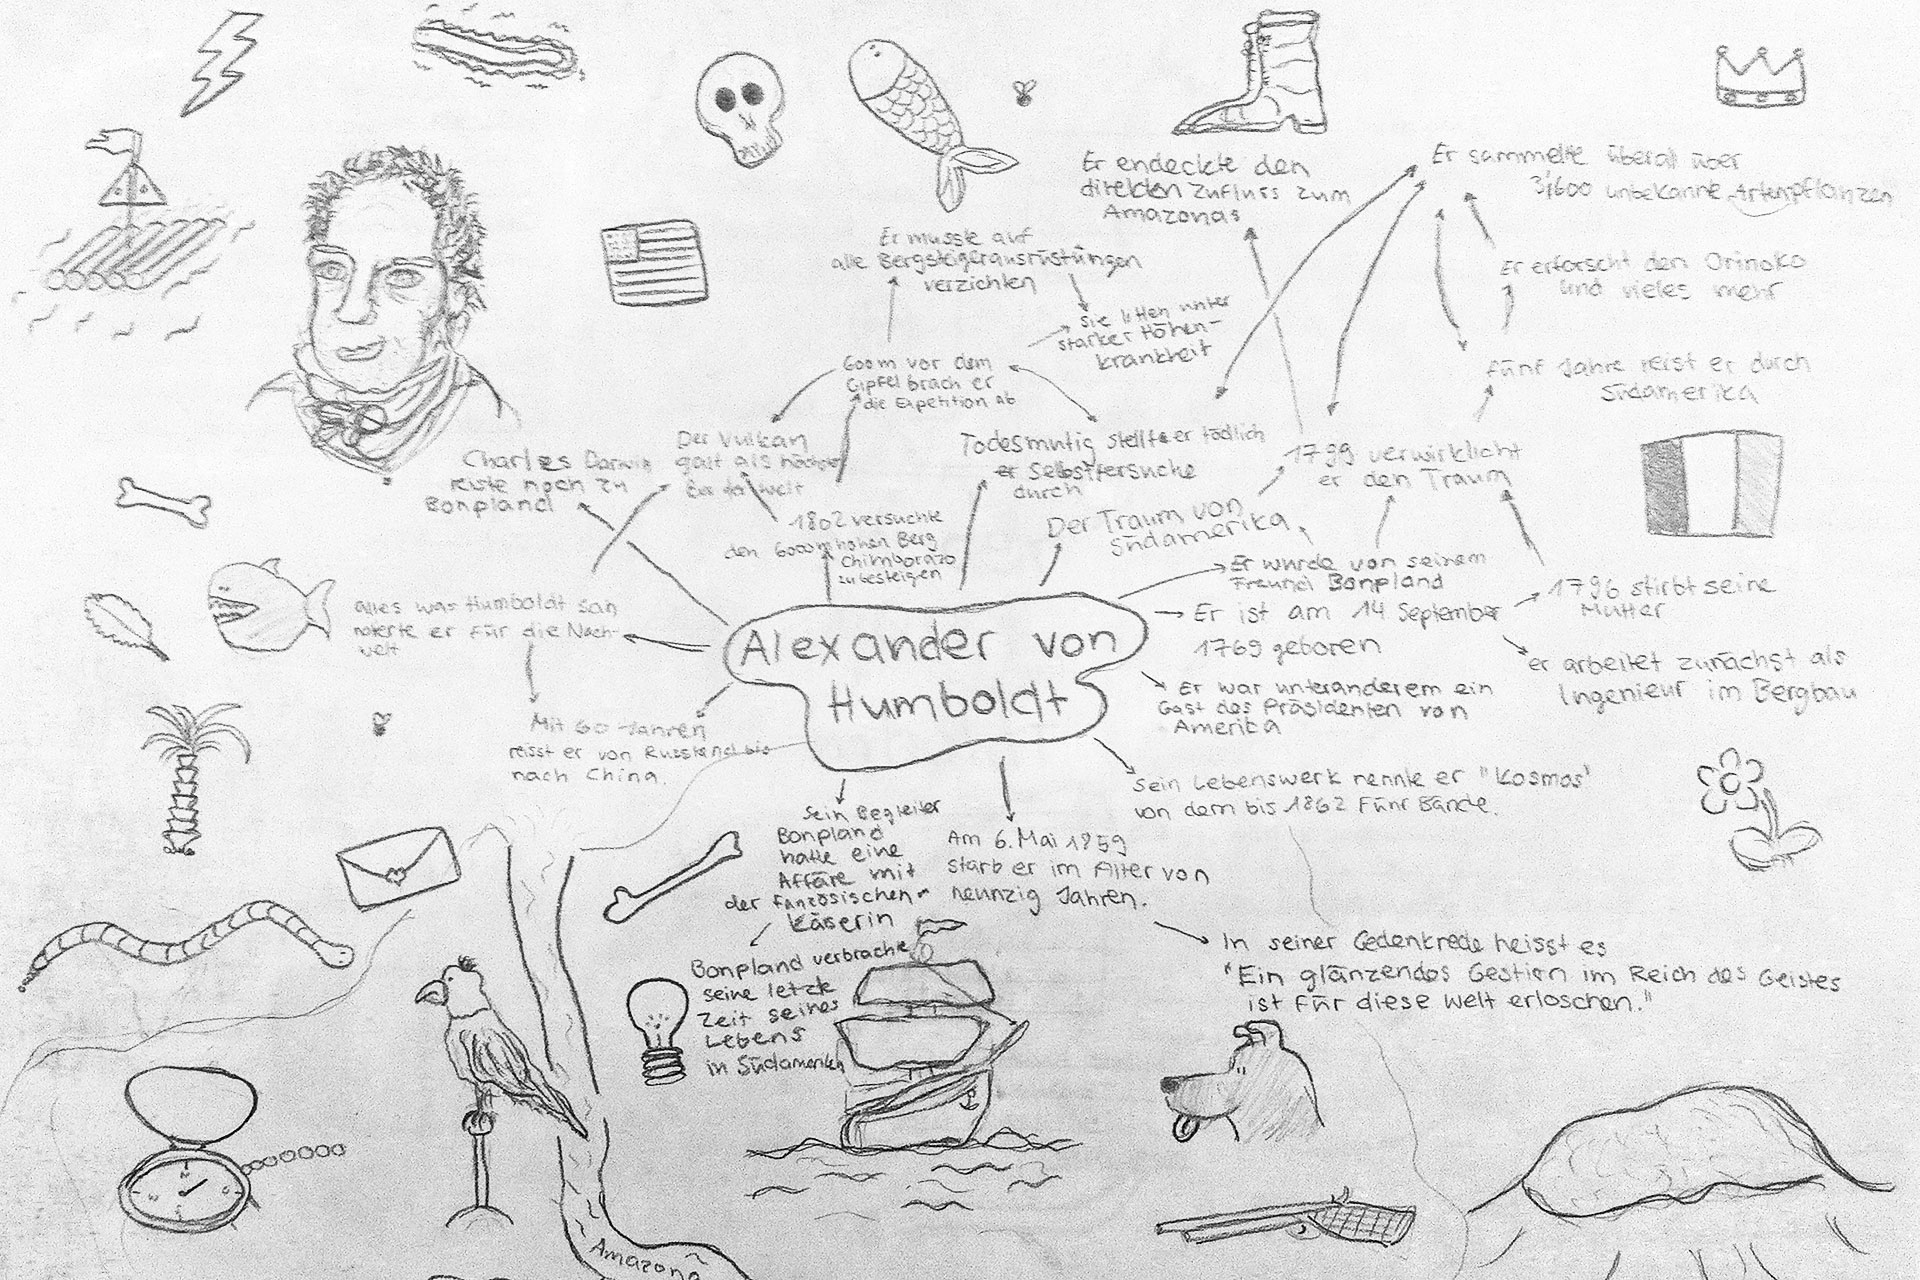 Alexander von
Humboldt
Er endeckte den
direkten Zufluss zum
Amazonas
Er sammelte überall über
3'600 unbekannte Artenpflanzen
Er musste auf
alle Bergsteigerausrüstungen
verzichten
Er erforscht den Orinoko
und vieles mehr
Sie litten unter
starker Höhen-
krankheit
600m vor dem
Gipfel brach er
die Expetition ab
Fünf Jahre reist er durch
Südamerika
Charles Darwin
reiste noch zu
Bonpland
Der Vulkan
galt als höchster
der Welt
Todesmutig stellte er tödlich
er Selbstversuche
durch
1799 verwirklicht
er den Traum
1802 versuchte
den 6000m hohen Berg
Chimborazo
zu besteigen
Der Traum von
Südamerika
Er wurde von seinem
Freund Bonpland
1796 stirbt seine
Mutter
Er ist am 14 September
1769 geboren
alles was Humboldt sah
notierte er für die Nach-
welt
er arbeitet zunächst als
Ingenieur im Bergbau
Er war unteranderem ein
Gast des Präsidenten von
Amerika
Mit 60 Jahren
reist er von Russland bis
nach China.
Sein Lebenswerk nennte er "Kosmos"
von dem bis 1862 Fünf Bände.
Sein Begleiter
Bonpland
hatte eine
Affäre mit
der französischen
Käserin
Am 6. Mai 1859
starb er im Alter von
neunzig Jahren.
Bonpland verbrachte
seine letzte
Zeit seines
Lebens
in Südamerika
In seiner Gedenkrede heisst es
"Ein glänzendes Gestirn im Reich des Geistes
ist für diese Welt erloschen."
Amazona